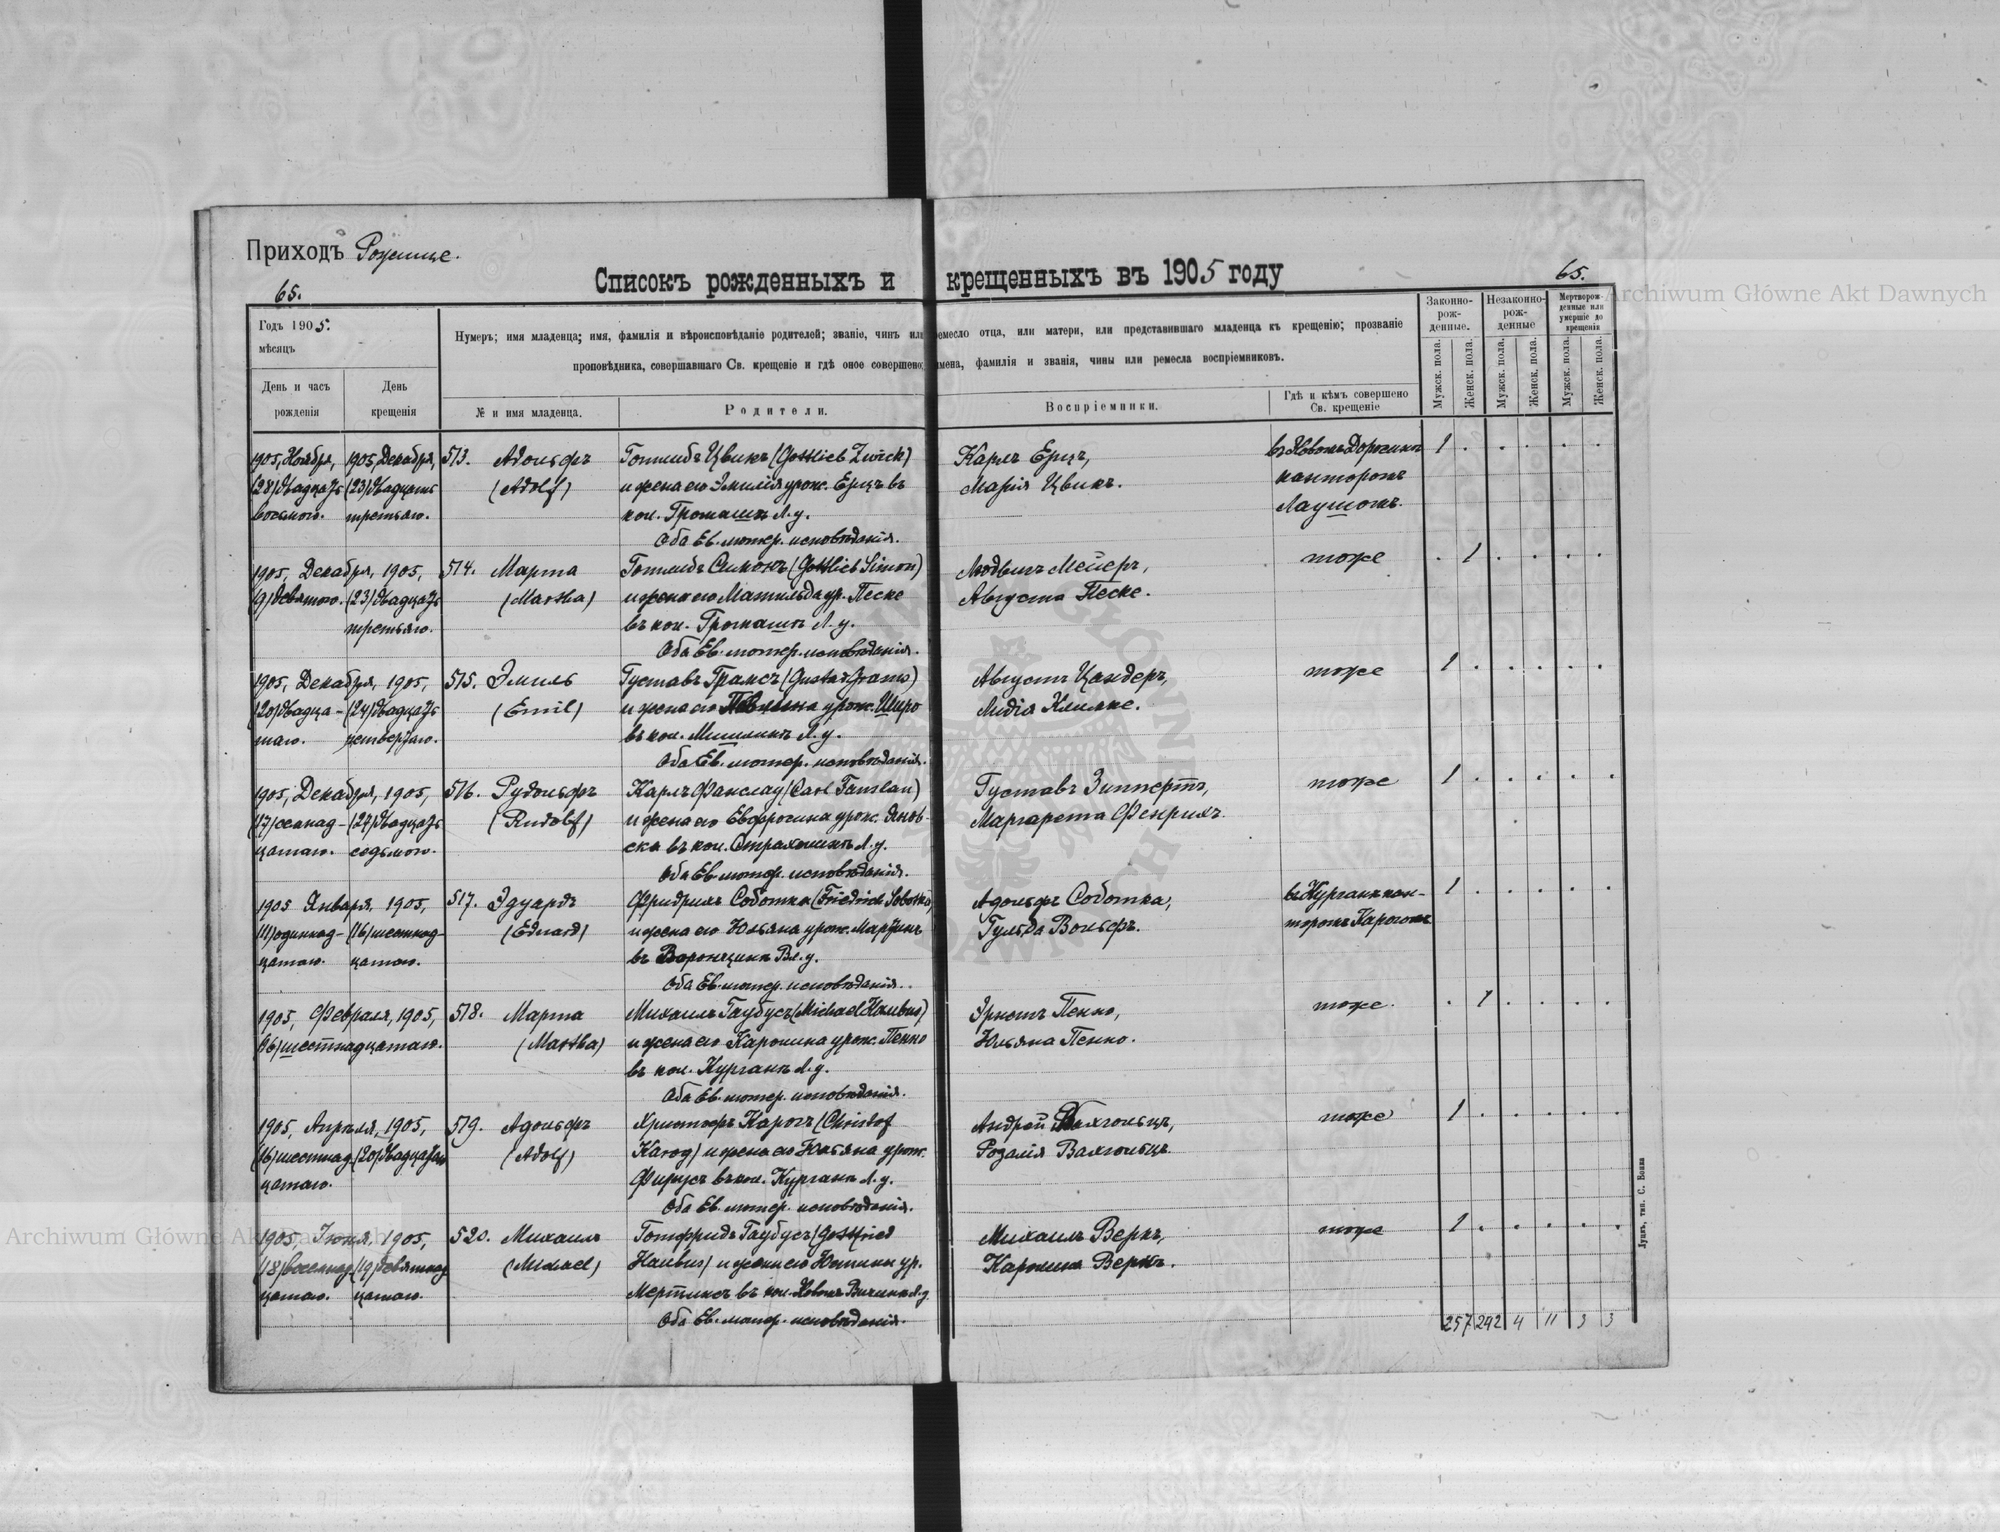 Приходъ Рожище.
65.
Списокъ рожденныхъ и крещенныхъ въ 1905 году
65.
Годъ 1905.
мѣсяцъ
День и часъ рожденія
День крещенія
Нумеръ; имя младенца; имя, фамилія и вѣроисповѣданіе родителей; званіе, чинъ или ремесло отца, или матери, или представившаго младенца къ крещенію; прозваніе
проповѣдника, совершавшаго Св. крещеніе и гдѣ оное совершено; имена, фамилія и званія, чины или ремесла воспріемниковъ.
№ и имя младенца.
Родители.
Воспріемники.
Гдѣ и кѣмъ совершено
Св. крещеніе
Законно-
рож-
денные.
Незаконно-
рож-
денные
Мертворож-
денные или
умершіе до
крещенія
Мужск. пола.
Женск. пола.
Мужск. пола.
Женск. пола.
Мужск. пола.
Женск. пола.
1905, Ноября, 1905, Декабря, 513. Адольфъ Готлибъ Цвикъ (Gottlieb Zwick) Карлъ Ерцъ, въ Новомъ Доросинѣ 1
(28) двадцать (23) двадцать (Adolf) и жена его Эмилія урож. Ерцъ въ Марія Цвикъ. канторомъ
восьмого. третьяго. кол. Громашъ Л. у. Лаушомъ.
Оба Ев. лютер. исповѣданія.
1905, Декабря, 1905, 514. Марта Готлибъ Симонъ (Gottlieb Simon) Людвигъ Мейеръ, тоже 1
(9) девятого. (23) двадцать (Martha) и жена его Матильда ур. Песке Августа Песке.
третьяго. въ кол. Громашъ Л. у.
Оба Ев. лютер. исповѣданія.
1905, Декабря, 1905, 515. Эмиль Густавъ Грамсъ (Gustav Grams) Августъ Цандеръ, тоже 1
(20) двадца- (24) двадцать (Emil) и жена его урож. Широ Лидія
таго. четвертаго. въ кол. Л. у.
Оба Ев. лютер. исповѣданія.
1905, Декабря, 1905, 516. Рудольфъ Карлъ Фанслау (Carl Fanslau) Густавъ Зиппертъ, тоже 1
(17) семнад- (27) двадцать (Rudolf) и жена его Евфрогина урож. Янов- Маргарета Фенрихъ.
цатаго. седьмого. ска въ кол. Л. у.
Оба Ев. лютер. исповѣданія.
1905 Января, 1905, 517. Эдуардъ Фридрихъ Соботка (Friedrich Sobotka) Адольфъ Соботка, въ Курганѣ кан- 1
(11) одиннад- (16) шестнад- (Eduard) и жена его Юльяна урож. Гульда Вольфъ. торомъ Карогомъ
цатаго. цатаго. въ Вл. у.
Оба Ев. лютер. исповѣданія.
1905, Февраля, 1905, 518. Марта Михаилъ Гаубусъ (Michael Haubus) Эрнстъ Пенно, тоже. 1
(16) шестнадцатаго. (Martha) и жена его Каролина урож. Пенно Юльяна Пенно.
въ кол. Курганъ Л. у.
Оба Ев. лютер. исповѣданія.
1905, Апрѣля, 1905, 519. Адольфъ Христофъ Карогъ (Christof Андрей тоже 1
(16) шестнад (20) (Adolf) Karog) и жена его Юльяна урож. Розалія
цатаго. въ кол. Курганъ Л. у.
Оба Ев. лютер. исповѣданія.
1905, Іюня, 1905, 520. Михаилъ Готфридъ Гаубусъ (Gottfried Михаилъ Веркъ, тоже 1
(18) восемнад (19) девятнад (Michael) Haubus) и жены его ур. Каролина Веркъ.
цатаго. цатаго. въ кол.
Оба Ев. лютер. исповѣданія.
257 242 4 11 3 3
Луцкъ, тип. С. Бонка
Archiwum Główne Akt Dawnych
Archiwum Główne Akt Dawnych